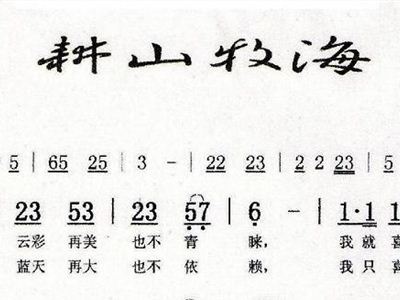 耕山牧海
5 | 65 25 | 3 - | 22 23 | 2 2 23 | 5
23 53 | 23 57 | 6 - | 1·1
云彩 再美 也不 青 睐， 我 就 喜
蓝天 再大 也不 依 赖， 我 只 喜